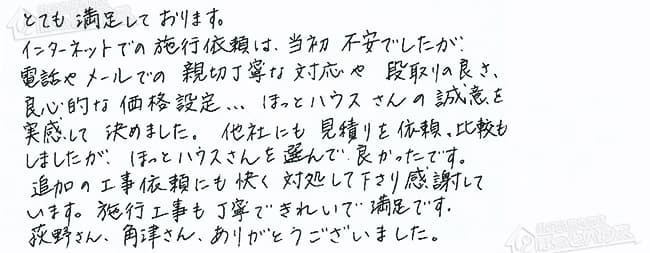 とても満足しております。
インターネットでの施行依頼は、当初 不安でしたが、
電話やメールでの 親切丁寧な対応や 段取りの良さ、
良心的な価格設定... ほっとハウスさんの誠意を
実感して 決めました。 他社にも 見積りを依頼、比較も
しましたが、ほっとハウスさんを選んで良かったです。
追加の工事依頼にも快く対処して下さり感謝して
います。施行工事も丁寧できれいで満足です。
荻野さん、角津さん、ありがとうございました。
ほっとハウス